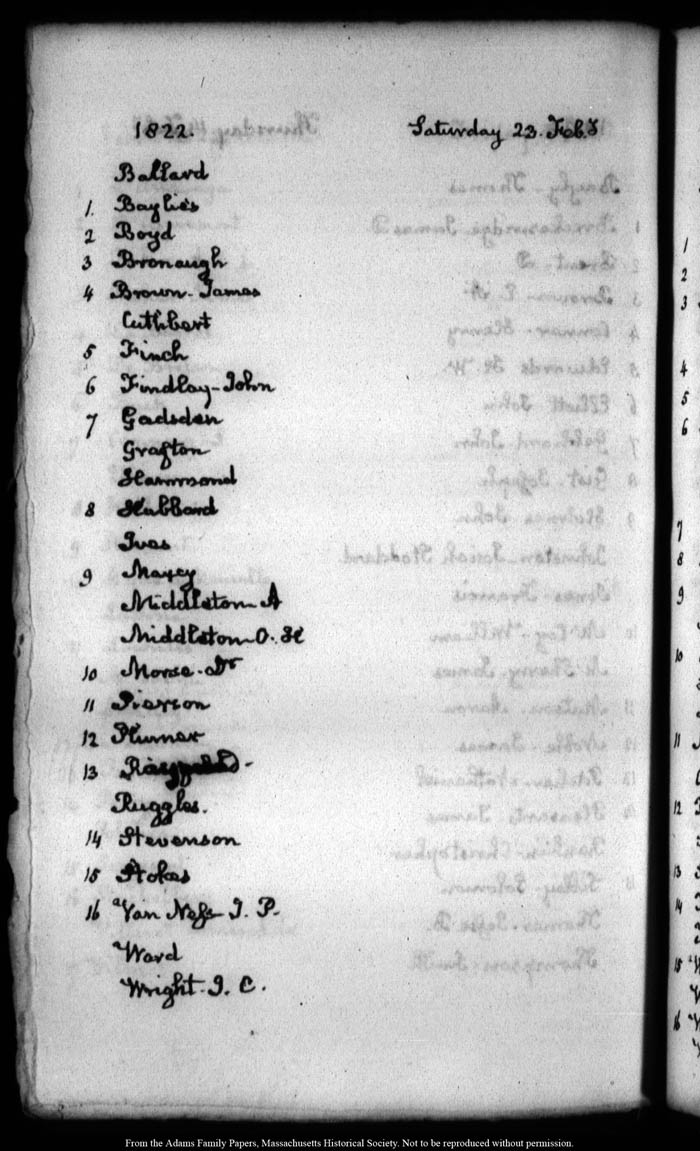 1822. Saturday 23. Feby
Ballard
1. Baylies
2 Boyd
3 Bronaugh
4 Brown-James
Cuthbert
5 Finch
6 Findlay-John
7 Gadsden
Grafton
Hammond
8 Hubbard
Ives
9 Maxcy
Middleton-A
Middleton-O. H
10 Morse-Dr
11 Pierson
12 Plumer
13
Ruggles.
14 Stevenson
15 Stokes
16 Van Ness J. P.
Ward
Wright. J. C.
1
2
3
4
5
6
7
8
9
10
11
12
13
14
15
16
From the Adams Family Papers, Massachusetts Historical Society. Not to be reproduced without permission.